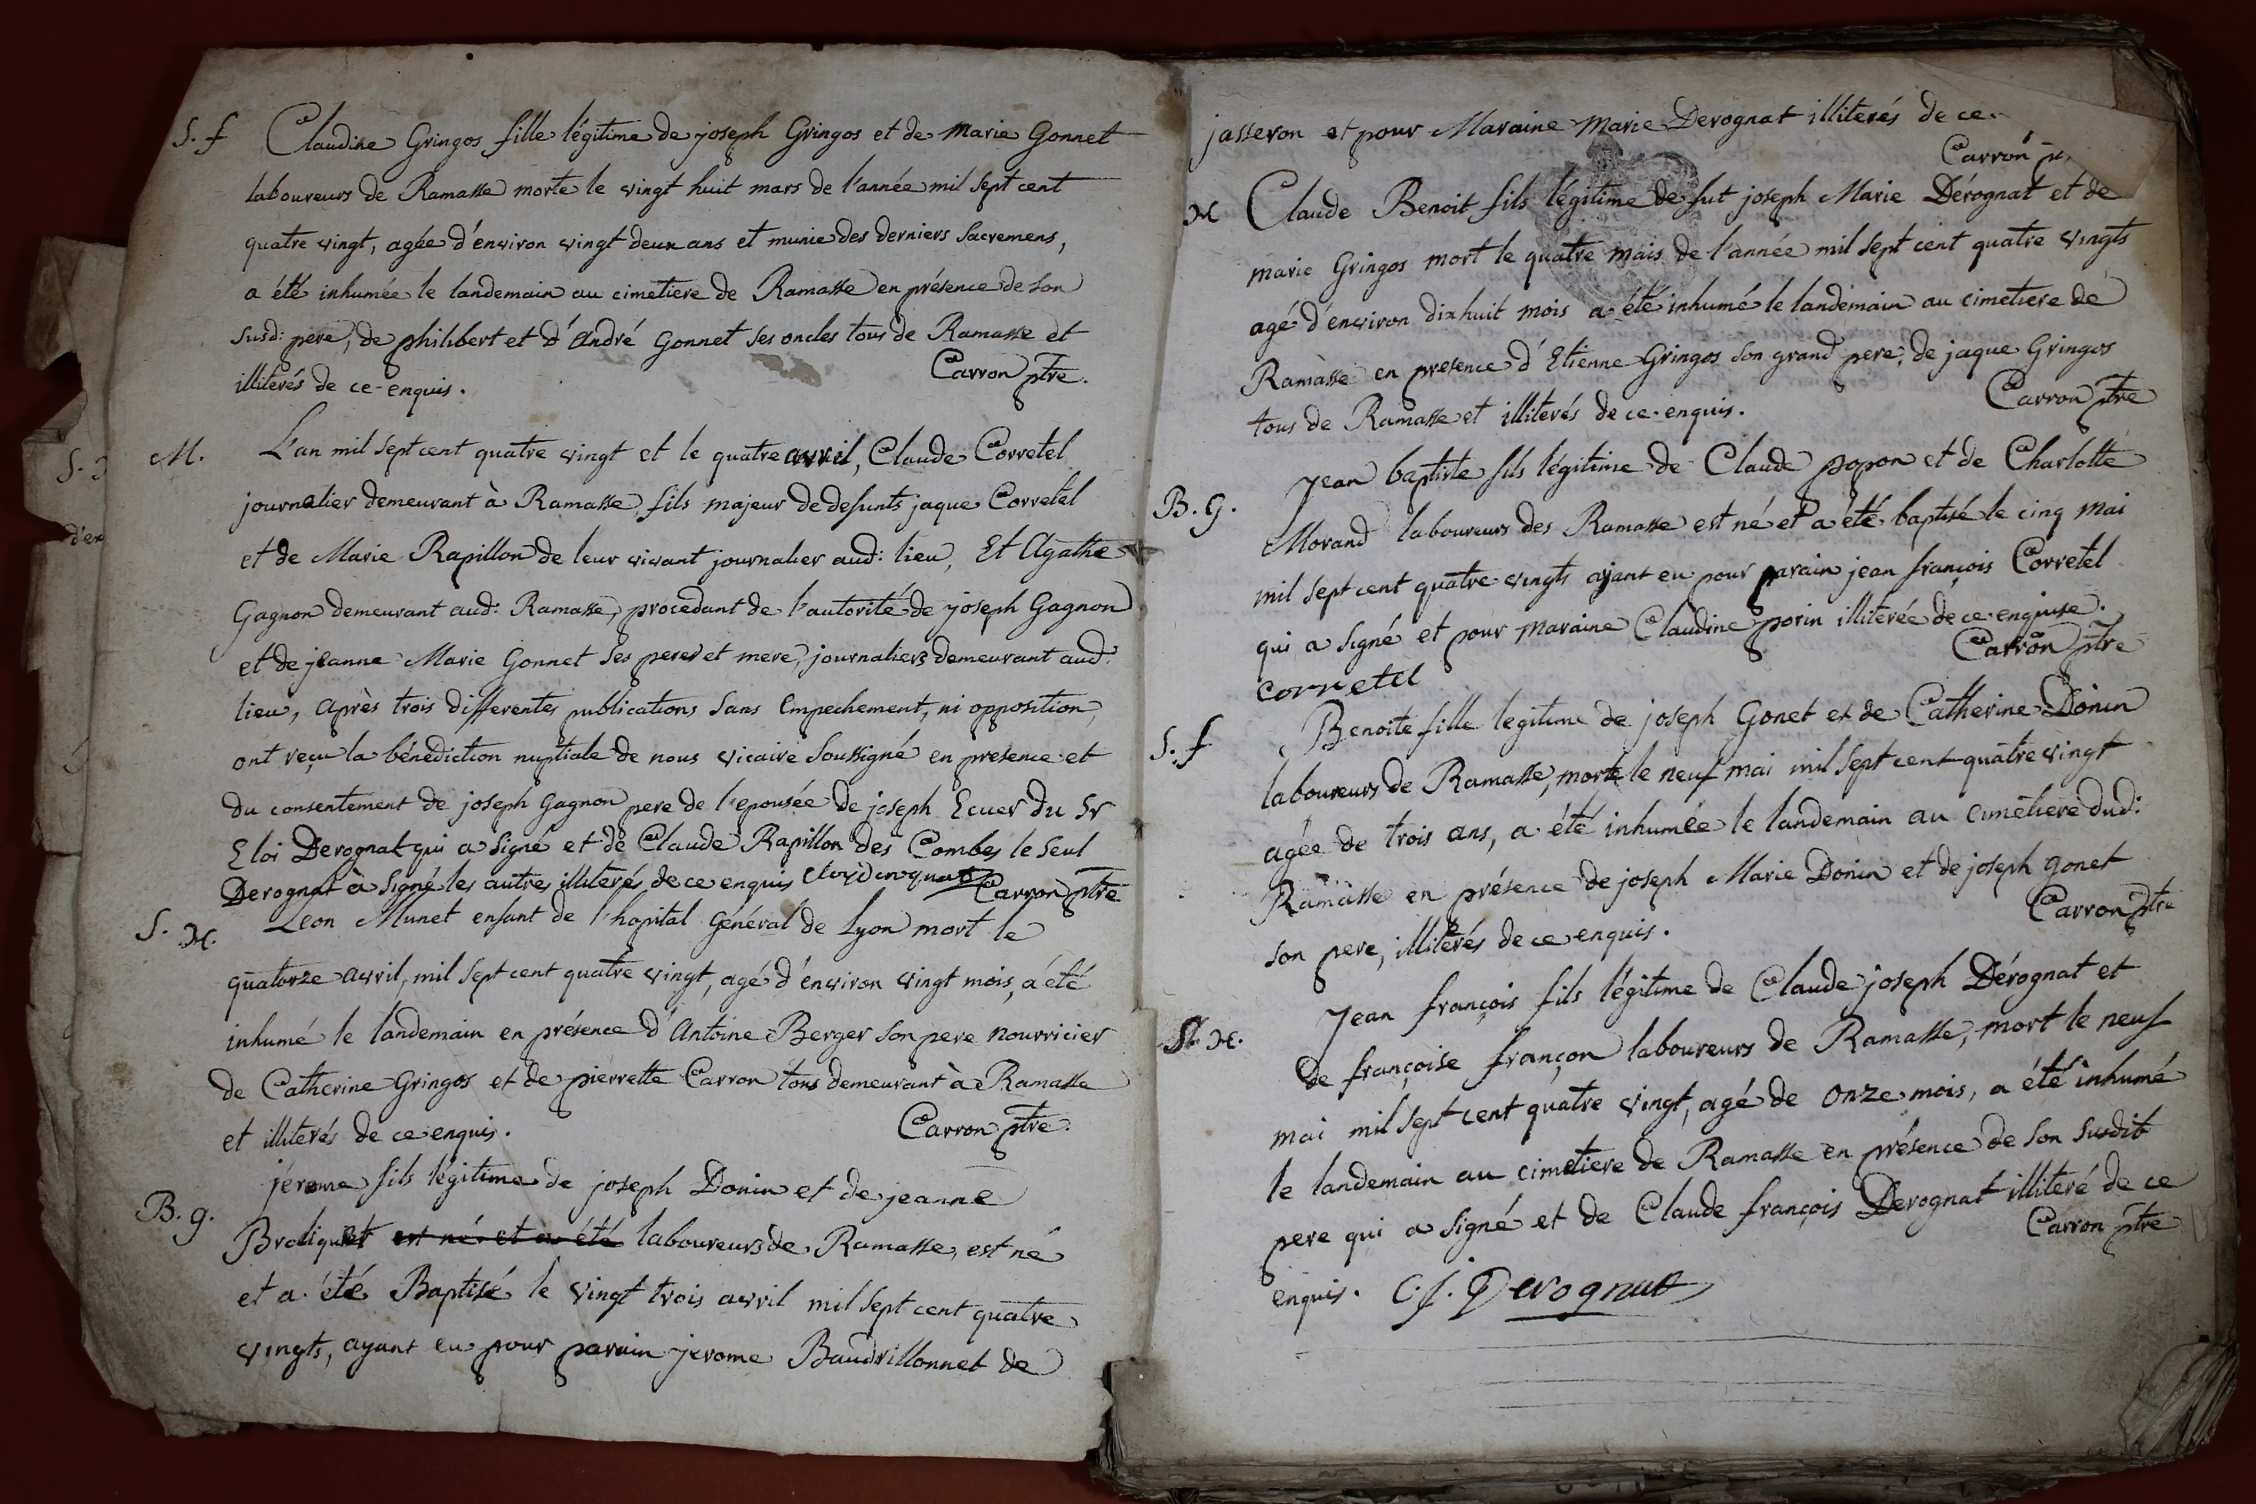 S. f Claudine Gringos fille légitime de joseph Gringos et de Marie Gonnet
laboureurs de Ramasse morte le vingt huit mars de l'année mil sept cent
quatre vingt, agée d'environ vingt deux ans et munie des derniers Sacremens,
a été inhumée le landemain au cimetiere de Ramasse en présence de son
susd: pere, de philibert et d'André Gonnet ses oncles tous de Ramasse et
illiterés de ce enquis.
Carron ptre.
M. L'an mil sept cent quatre vingt et le quatre avril, Claude Corretel
journalier demeurant à Ramasse fils majeur de defunts jaque Corretel
et de Marie Rapillon de leur vivant journalier aud: lieu, Et Agathe
Gagnon demeurant aud: Ramasse, procedant de l'autorité de joseph Gagnon
et de jeanne Marie Gonnet ses peres et mere, journaliers demeurant aud:
lieu, après trois differentes publications sans Empechement, ni opposition
ont reçu la bénédiction nuptiale de nous vicaire soussigné en presence et
du consentement de joseph Gagnon pere de l'epousée de joseph Ecuer du Sr
Eloi Derognat qui a signé et de Claude Rapillon des Combes le seul
Derognat à signé les autres illiterés de ce enquis Eloy Derognat
Carron ptre
S. M. Leon Munet enfant de l'hopital Général de Lyon mort le
quatorze avril, mil sept cent quatre vingt, agé d'environ vingt mois, a été
inhumé le landemain en présence d'Antoine Berger son pere nourricier
de Catherine Gringos et de pierrette Carron tous demeurant à Ramasse
et illiterés de ce enquis.
Carron ptre.
B. g. jérome fils légitime de joseph Donin et de jeanne
Broliquet est né et a été laboureurs de Ramasse, est né
et a été Baptisé le vingt trois avril mil sept cent quatre
vingts, ayant eu pour parain jerome Baudrillonnet de
jasseron et pour Maraine Marie Derognat illiterés de ce
Carron
M Claude Benoit fils légitime de fut joseph Marie Dérognat et de
marie Gringos mort le quatre mais de l'année mil sept cent quatre vingts
agé d'environ dix huit mois a été inhumé le landemain au cimetiere de
Ramasse en presence d'Etienne Gringos son grand pere, de jaque Gringos
tous de Ramasse et illiterés de ce enquis.
Carron ptre
B. G. Jean baptiste fils légitime de Claude popon et de Charlotte
Morand laboureurs des Ramasse est né et a été baptisé le cinq mai
mil sept cent quatre vingts ayant eu pour parain jean françois Corretel
qui a signé et pour maraine Claudine porin illiterée de ce enquise.
Carron ptre
corretel
S. f Benoite fille legitime de joseph Gonet et de Catherine Donin
laboureurs de Ramasse, morte le neuf mai mil sept cent quatre vingt
agée de trois ans, a été inhumée le landemain au cimetiere dud:
Ramasse en présence de joseph Marie Donin et de joseph gonet
son pere, illiterés de ce enquis.
Carron ptre
S. M. Jean françois fils légitime de Claude joseph Dérognat et
de françoise françon laboureurs de Ramasse, mort le neuf
mai mil sept cent quatre vingt, agé de onze mois, a été inhumé
le landemain au cimetiere de Ramasse en présence de son susdit
pere qui a signé et de Claude françois Derognat illiteré de ce
enquis. C. j. Derognat
Carron ptre